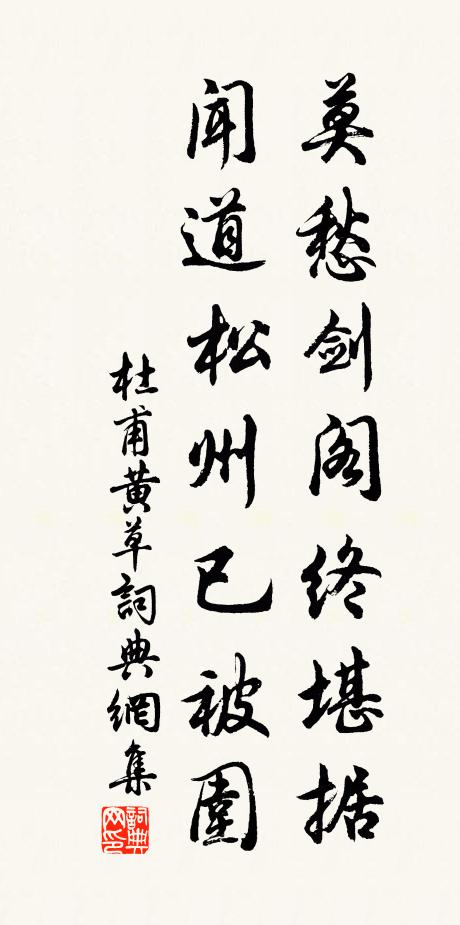 莫愁剑阁终堪据
闻道松州已被圍
杜甫黄草詞典網集
詞典网印